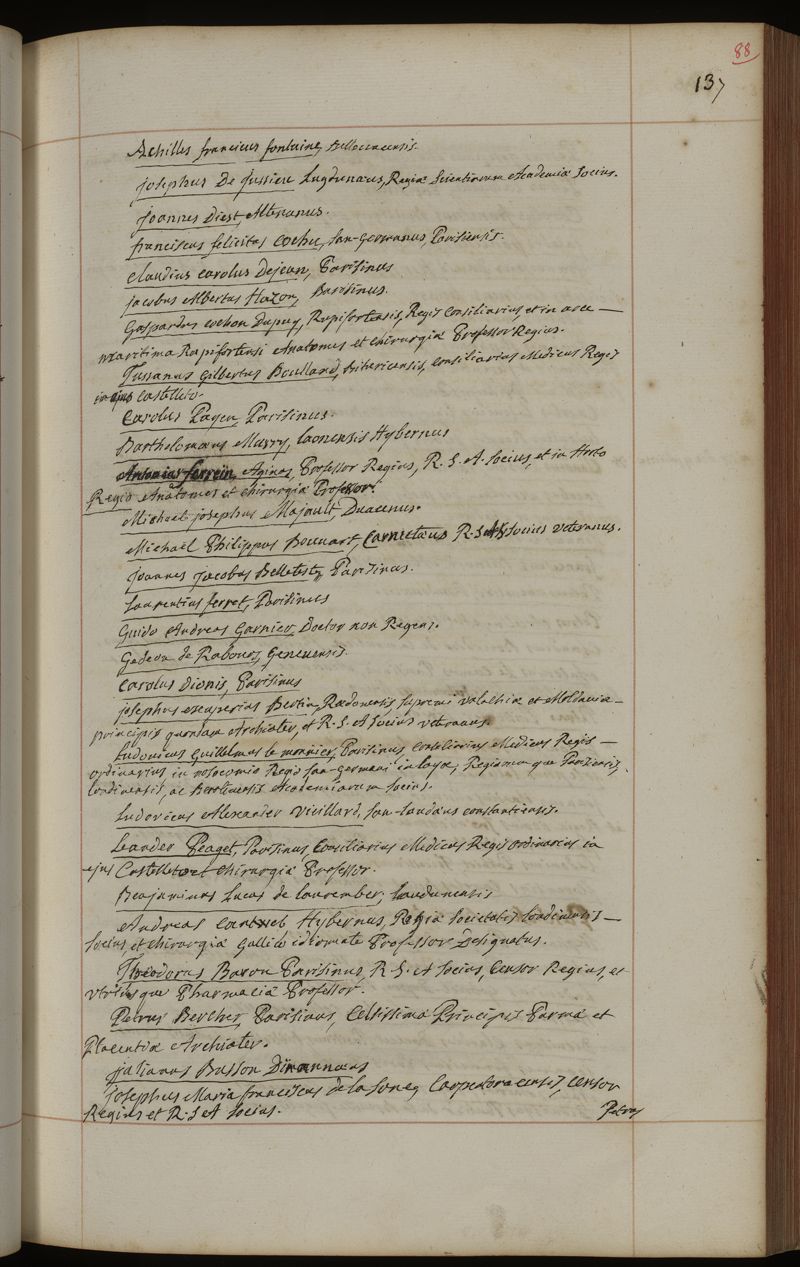 88
137
Achilles franciscus fontaine,
josephus De jussieu Lugdunæus, Regiæ Scientiarum Academiæ Socius.
joannes Diest, Altenanus.
franciscus felicitas cochu, San-germanus, Parisiensis.
claudius carolus Dejean, Parisinus
jacobus Albertus Hazon, Parisinus.
Gaspardus cochon Dupuy, Rupifortensis, Regis Consiliarius et in arce —
maritima Rupifortensi Anatomes et chirurgiæ Professor Regius.
Tussanus Gilbertus Boullard, Bituricensis, Consiliarius Medicus Regis
in ejus Castelleto.
Carolus Payen, Parisinus.
Bartholomæus Murry, laonensis Hybernus
Antonius ferrein, Aginas, Professor Regius, R. S. A. Socius, et in Horto
Regio Anatomes et chirurgiæ Professor.
Michael josephus Majault, Duacenus.
Michaël Philippus Bouvart, Carnutæus R. S. A. Socius veteranus.
joannes jacobus Belleteste, Parisinus.
laurentius ferret, Parisinus
Guido Andreas Garnier, Doctor non Regens.
Gedeon de Rabours, Genevensis.
carolus Dionis, Parisinus
josephus exuperius Bertin, Redonensis supremi valachiæ et Moldaviæ —
principis quondam Archiater, et R. S. A Socius veteranus.
Ludovicus Guillelmus le monnier, Parisinus Consiliarius Medicus Regis —
ordinarius in nosocomio Regio San-germani in laya; Regiarum que Parisiensis,
londinensis, ac Berolinensis Academiarum Socius.
Ludovicus Alexander vieillard, San-laudæus constantiensis.
Leander Peaget, Parisinus, Consiliarius Medicus Regis ordinarius in
ejus Castelleto et chirurgiæ Professor.
Benjaminus Lucas de laurembert, laudunensis
Andreas Cantwel Hybernus, Regiæ Societatis londinensis —
Socius, et chirurgiæ Gallico idiomate Professor Designatus.
Theodorus Baron Parisinus, R. S. A Socius, Censor Regius, et
utriusque Pharmaciæ Professor.
Petrus Bercher, Parisinus, Celsissimæ Principis Parmæ et
Placentiæ Archiater.
julianus Busson Dinannæus
josephus Maria franciscus de la Sone, Carpentoracensis, Censor
Regius et R. S A Socius.
Petrus